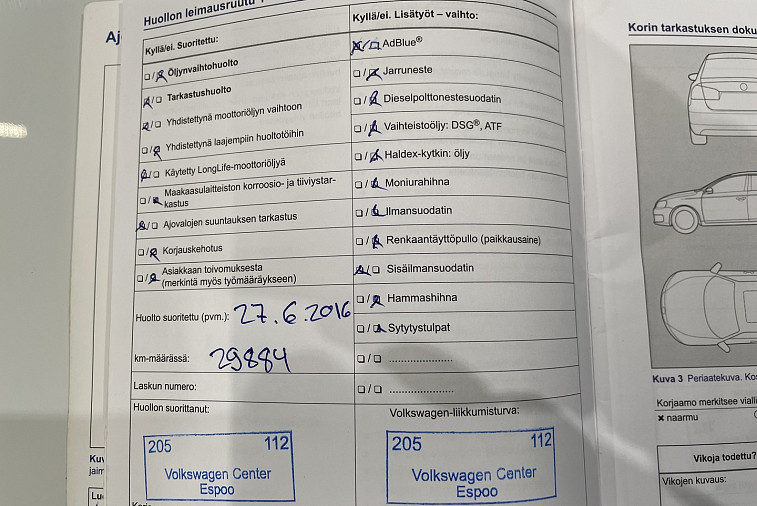 Huollon leimausruutu
Kyllä/ei. Suoritettu:
☐/☒ Öljynvaihtohuolto
☒/☐ Tarkastushuolto
☒/☐ Yhdistettynä moottoriöljyn vaihtoon
☐/☒ Yhdistettynä laajempiin huoltotöihin
☒/☐ Käytetty LongLife-moottoriöljyä
☐/☒ Maakaasulaitteiston korroosio- ja tiiviystar-
kastus
☒/☐ Ajovalojen suuntauksen tarkastus
☐/☒ Korjauskehotus
☐/☒ Asiakkaan toivomuksesta
(merkintä myös työmääräykseen)
Huolto suoritettu (pvm.): 27.6.2016
km-määrässä: 29884
Laskun numero:
Huollon suorittanut:
205 112
Volkswagen Center
Espoo
Kyllä/ei. Lisätyöt – vaihto:
☒/☐ AdBlue®
☐/☒ Jarruneste
☐/☒ Dieselpolttonestesuodatin
☐/☒ Vaihteistoöljy: DSG®, ATF
☐/☒ Haldex-kytkin: öljy
☐/☒ Moniurahihna
☐/☒ Ilmansuodatin
☐/☒ Renkaantäyttöpullo (paikkausaine)
☒/☐ Sisäilmansuodatin
☐/☒ Hammashihna
☐/☒ Sytytystulpat
☐/☐ .....................
☐/☐ .....................
Volkswagen-liikkumisturva:
205 112
Volkswagen Center
Espoo
Korin tarkastuksen
Kuva 3 Periaatekuva.
Korjaamo merkitsee
✖ naarmu
Vikoja todettu?
Vikojen kuvaus: